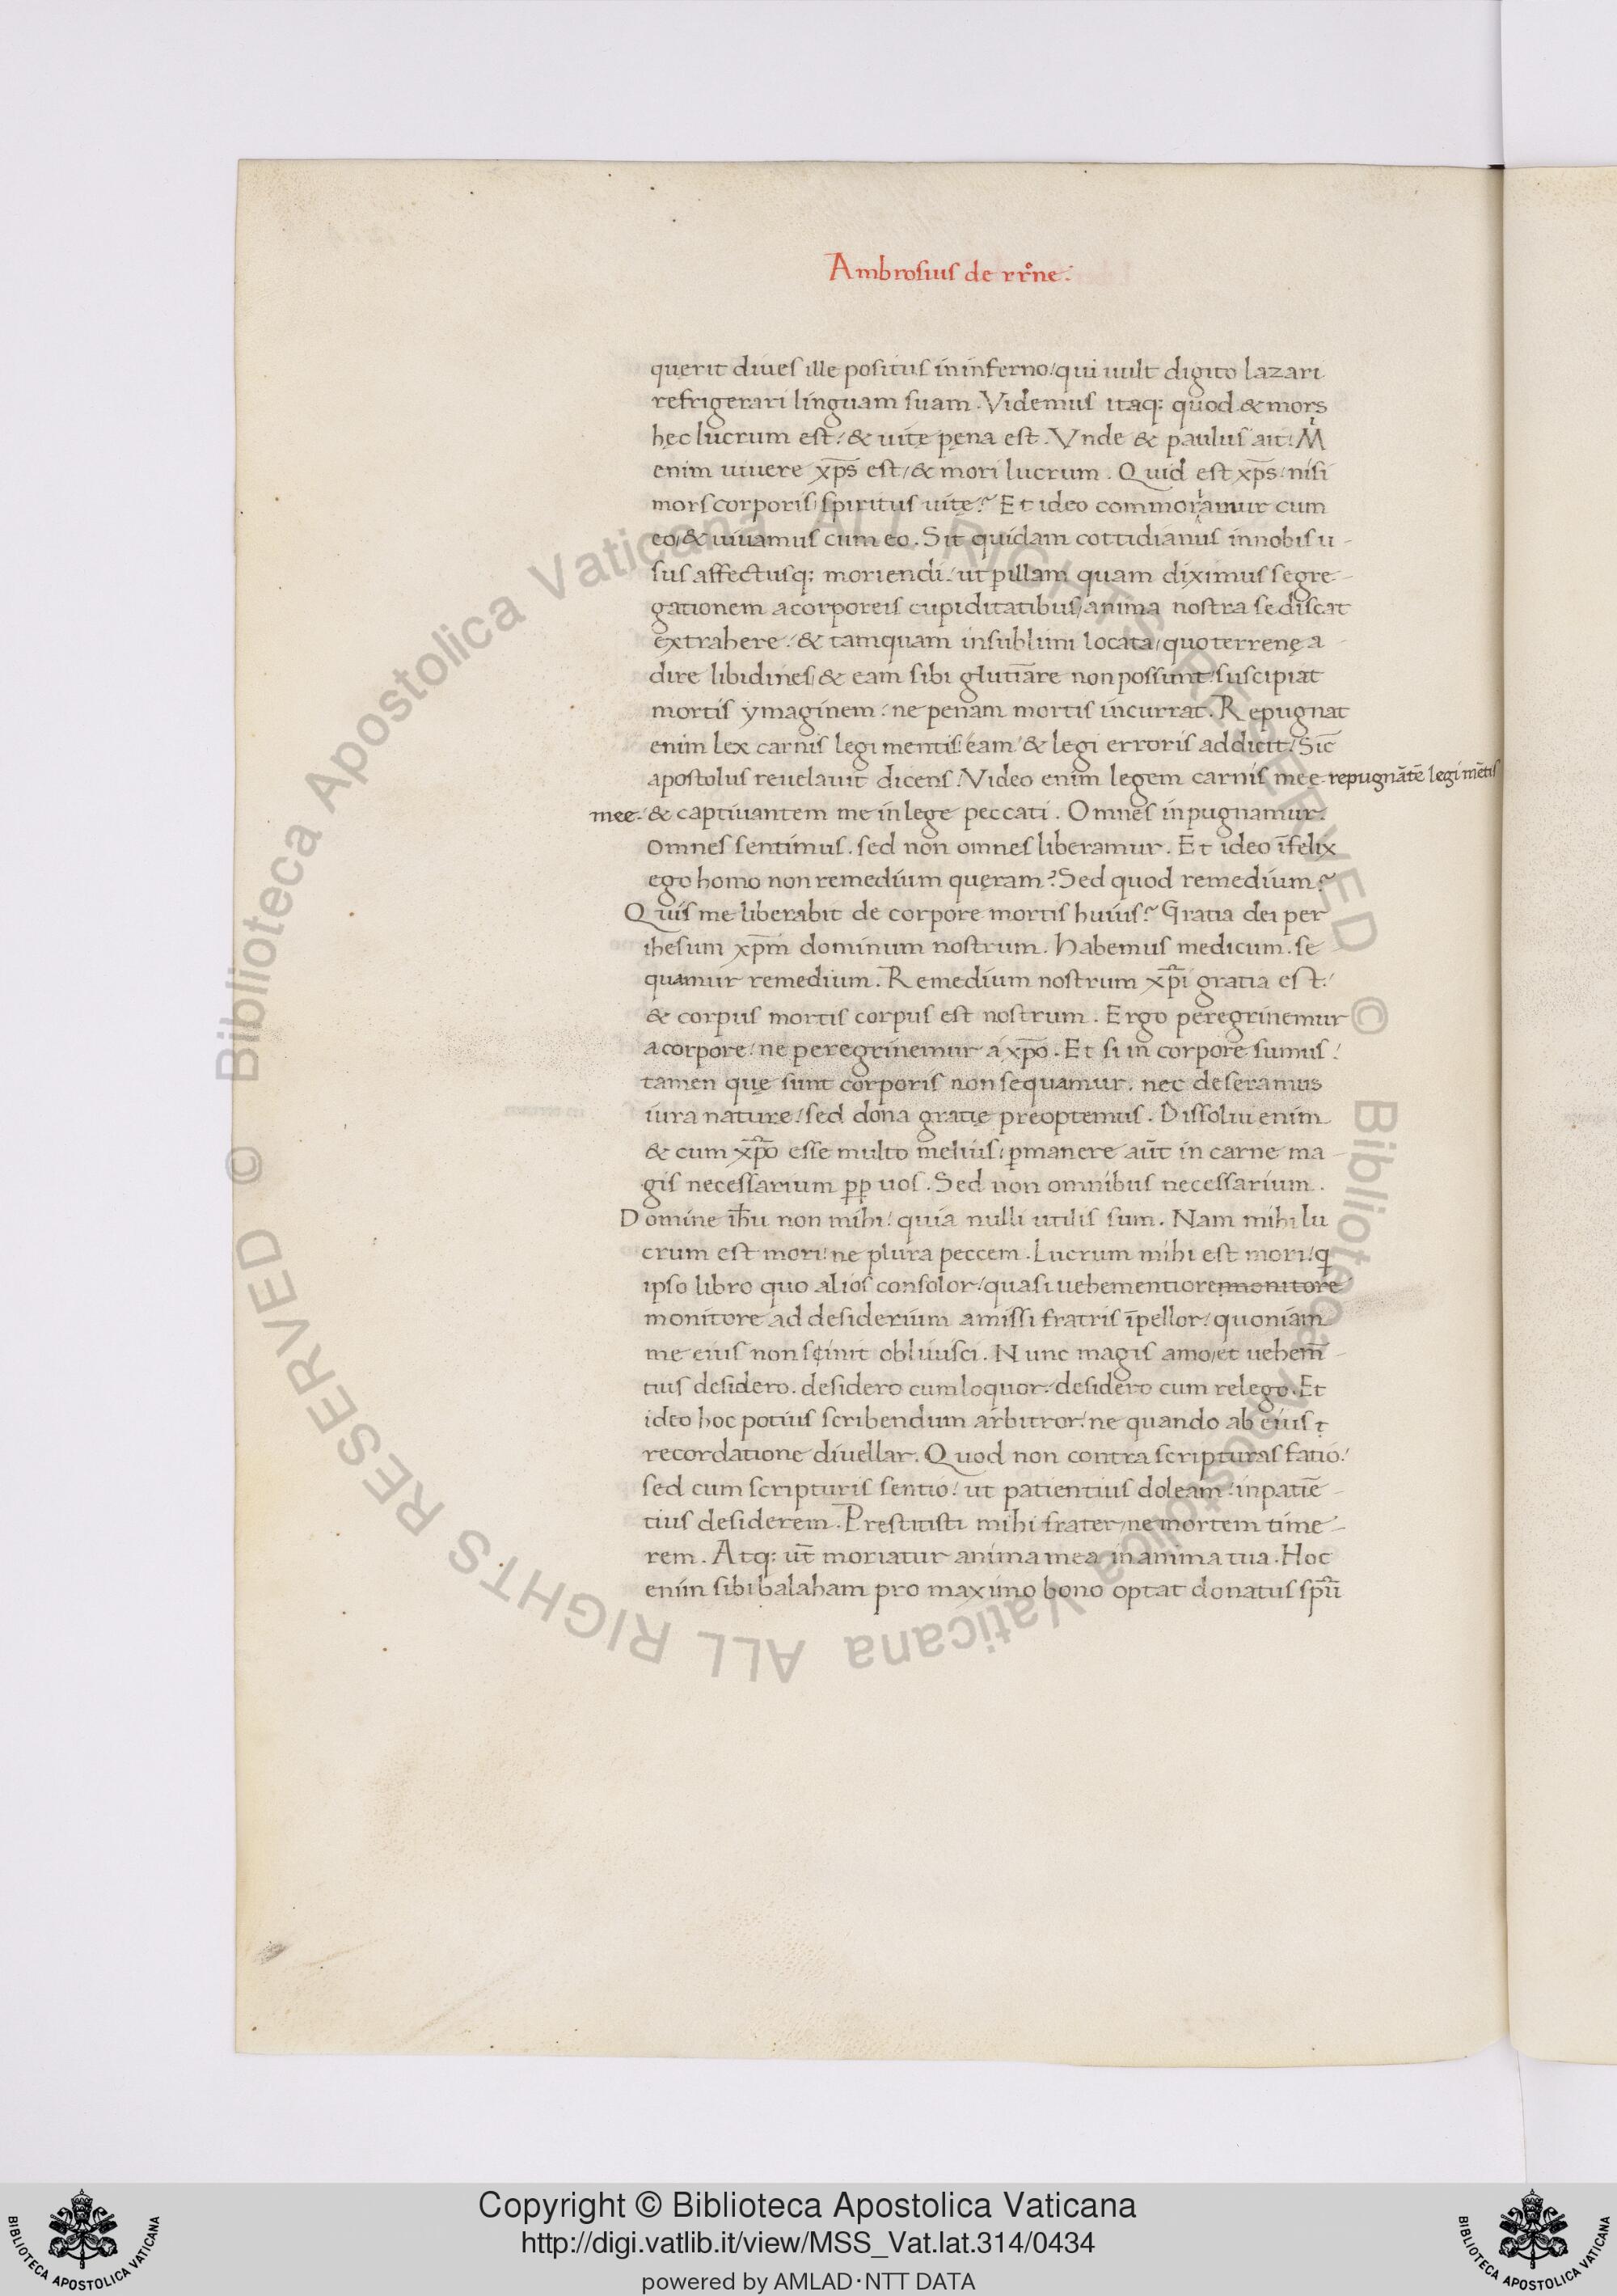 Ambrosius de rr̊ne.
querit diues ille positus in inferno / qui uult digito lazari
refrigerari linguam suam . Videmus itaq; quod & mors
hęc lucrum est / & uitę pęna est . Vnde & paulus ait / M̊
enim uiuere xp̄s est / & mori lucrum . Quid est xp̄s / nisi
mors corporis / spiritus uitę ? Et ideo commoriamur cum
eo / & uiuamus cum eo . Sit quidam cottidianus in nobis u-
sus affectusq; moriendi / ut p illam quam diximus segre-
gationem a corporeis cupiditatibus / anima nostra se discat
extrahere / & tamquam in sublimi locata / quo terrenę a-
dire libidines / & eam sibi glutīare non possunt / suscipiat
mortis ymaginem / ne penam mortis incurrat . Repugnat
enim lex carnis legi mentis / eam / & legi erroris addicit / Sic̄
apostolus reuelauit dicens / Video enim legem carnis mee repugnātē legi mētis
mee / & captiuantem me in lege peccati . Omnes inpugnamur .
omnes sentimus . sed non omnes liberamur . Et ideo īfelix
ego homo non remedium quęram ? Sed quod remedium ?
Quis me liberabit de corpore mortis huius ? Gratia dei per
ihesum xp̄m dominum nostrum . Habemus medicum . se
quamur remedium . Remedium nostrum xp̄i gratia est /
& corpus mortis corpus est nostrum . Ergo peregrinemur
a corpore / ne peregrinemur a xp̄o . Et si in corpore sumus /
tamen quę sunt corporis non sequamur . nec deseramus
iura nature / sed dona gratię preoptemus . Dissolui enim
& cum xp̄o esse multo melius / pmanere aūt in carne ma-
gis necessarium pp uos . Sed non omnibus necessarium .
Domine ih̄u non mihi / quia nulli utilis sum . Nam mihi lu
crum est mori / ne plura peccem . Lucrum mihi est mori / q
ipso libro quo alios consolor / quasi uehementiore monitore
monitore ad desiderium amissi fratris īpellor / quoniam
me eius non sinit obliuisci . Nunc magis amo / et uehem̄-
tius desidero . desidero cum loquor / desidero cum relego . Et
ideo hoc potius scribendum arbitror / ne quando ab eius
recordatione diuellar . Quod non contra scripturas fatio /
sed cum scripturis sentio / ut patientius doleam / inpatiē-
tius desiderem . Prestitisti mihi frater / ne mortem time-
rem . Atq; ut̄ moriatur anima mea in anima tua . Hoc
enim sibi balaham pro maximo bono optat donatus sp̄u
© Biblioteca Apostolica Vaticana ALL RIGHTS RESERVED © Biblioteca Apostolica Vaticana ALL RIGHTS RESERVED
Copyright © Biblioteca Apostolica Vaticana
http://digi.vatlib.it/view/MSS_Vat.lat.314/0434
powered by AMLAD·NTT DATA
BIBLIOTECA APOSTOLICA VATICANA
BIBLIOTECA APOSTOLICA VATICANA